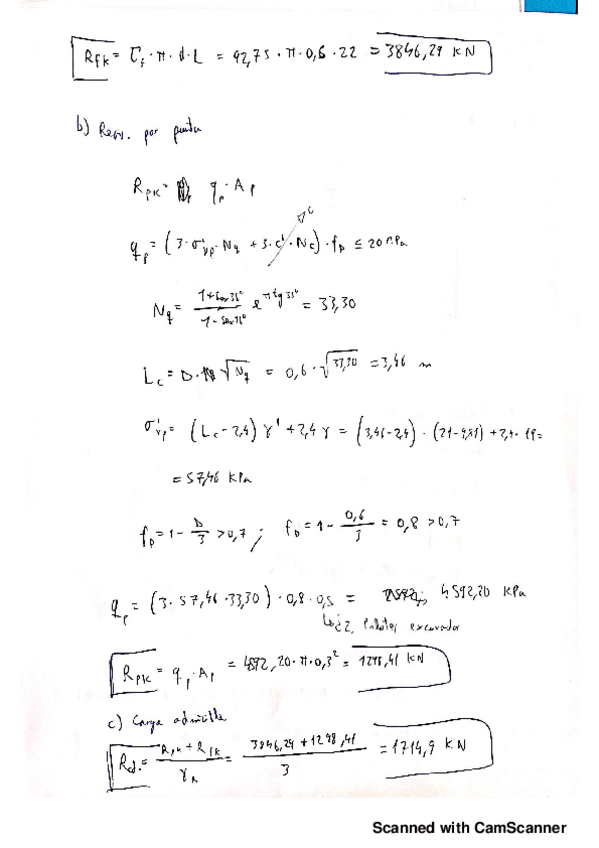 Rfk = τf · π · d · L = 92,75 · π · 0,6 · 22 = 3846,29 KN
b) Resis. por punta
Rpk = qp · Ap
qp = (3 · σ'vp · Nq + 3 · c' · Nc) · fD ≤ 20 MPa
Nq = (1+sen35°)/(1-sen35°) e^(π tg 35°) = 33,30
Lc = D · √Nq = 0,6 · √33,30 = 3,46 m
σ'vp = (Lc - 2,4) γ' + 2,4 γ = (3,46-2,4) · (21-9,81) + 2,4 · 19 =
= 57,46 kPa
fD = 1 - D/3 > 0,7 ; fD = 1 - 0,6/3 = 0,8 > 0,7
qp = (3 · 57,46 · 33,30) · 0,8 · 0,5 = 4592,20 KPa
Pilotes excavados
Rpk = qp · Ap = 4592,20 · π · 0,3² = 1298,41 KN
c) Carga admisible
Rad. = (Rpk + Rfk)/γR = (3846,29 + 1298,41)/3 = 1714,9 KN
Scanned with CamScanner